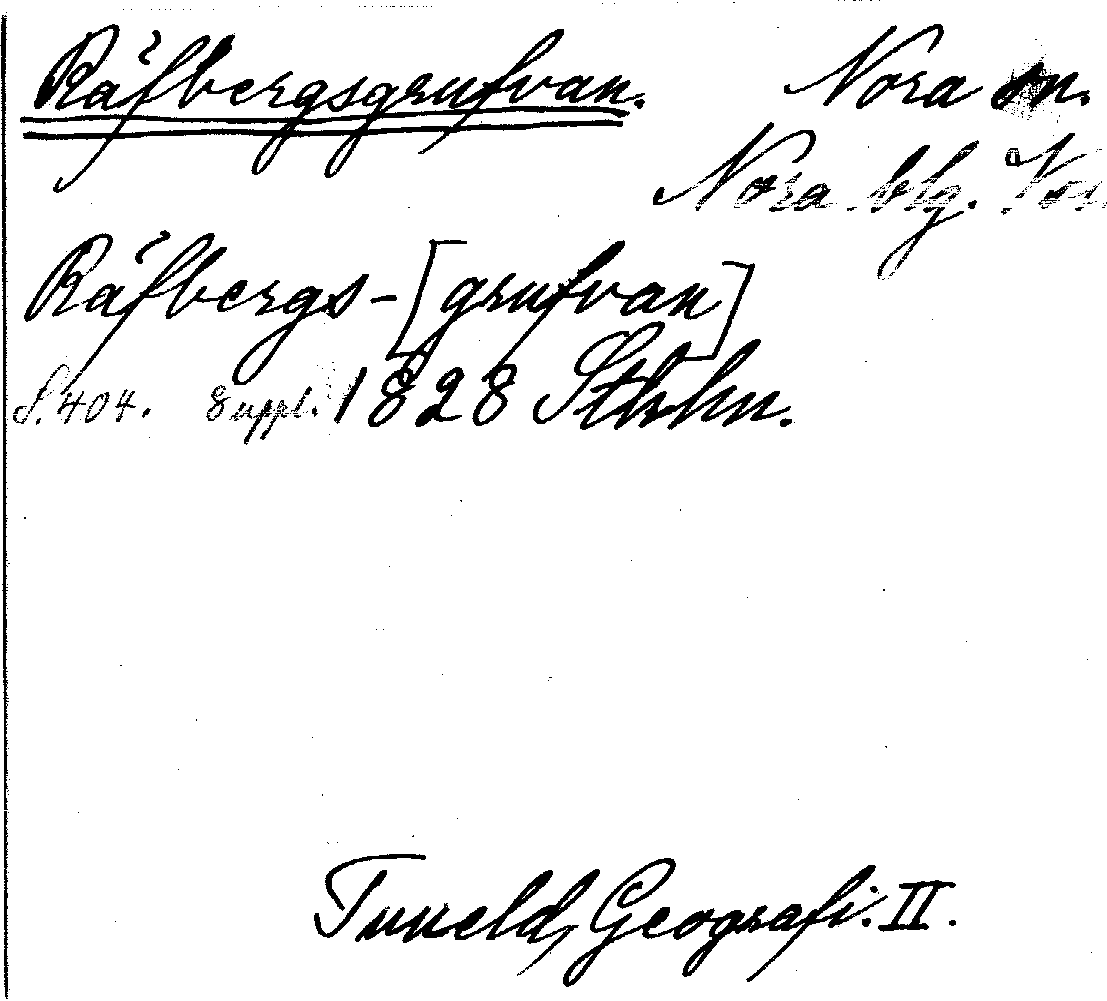 Räfbergsgrufvan. Nora sn.
Nora blg. Vor
Räfbergs-[grufvan]
S. 404. Suppl. 1828 Sthlm.
Tuneld, Geografi. II.